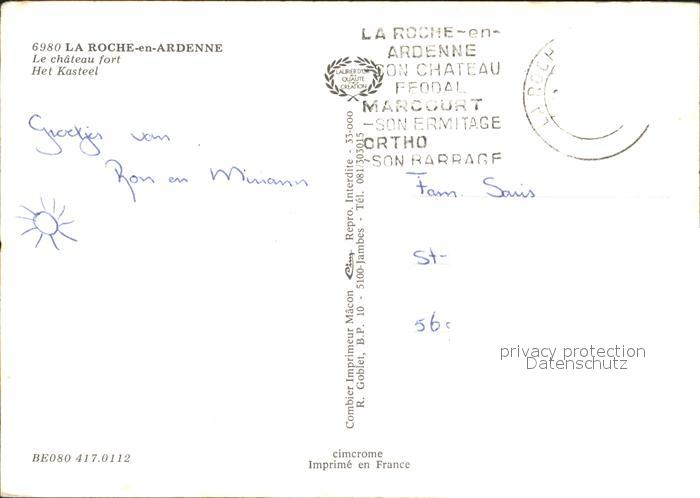 6980 LA ROCHE-en-ARDENNE
Le château fort
Het Kasteel
LA ROCHE-en-
ARDENNE
SON CHATEAU
FEODAL
MARCOURT
-SON ERMITAGE
ORTHO
-SON BARRAGE
LAURIER D'OR
QUALITE
CREATION
LA ROCH
Groetjes van
Ron en Miriam
Fam. Saris
St-
56
Combier Imprimeur Mâcon Cim Repro. Interdite - 35-000
R. Goblet, B.P. 10 - 5100-Jambes - Tél. 081/303015
privacy protection
Datenschutz
BE080 417.0112
cimcrome
Imprimé en France